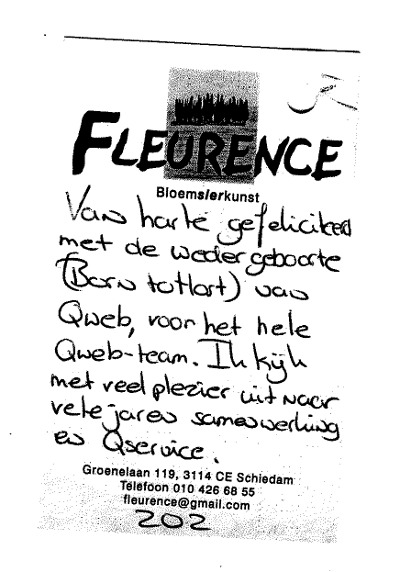 FLEURENCE
Bloemsierkunst
Van harte gefeliciteerd
met de wedergeboorte
(Born to Hart) van
Qweb, voor het hele
Qweb-team. Ik kijk
met veel plezier uit naar
vele jaren samenwerking
en Qservice.
Groenelaan 119, 3114 CE Schiedam
Telefoon 010 426 68 55
fleurence@gmail.com
202